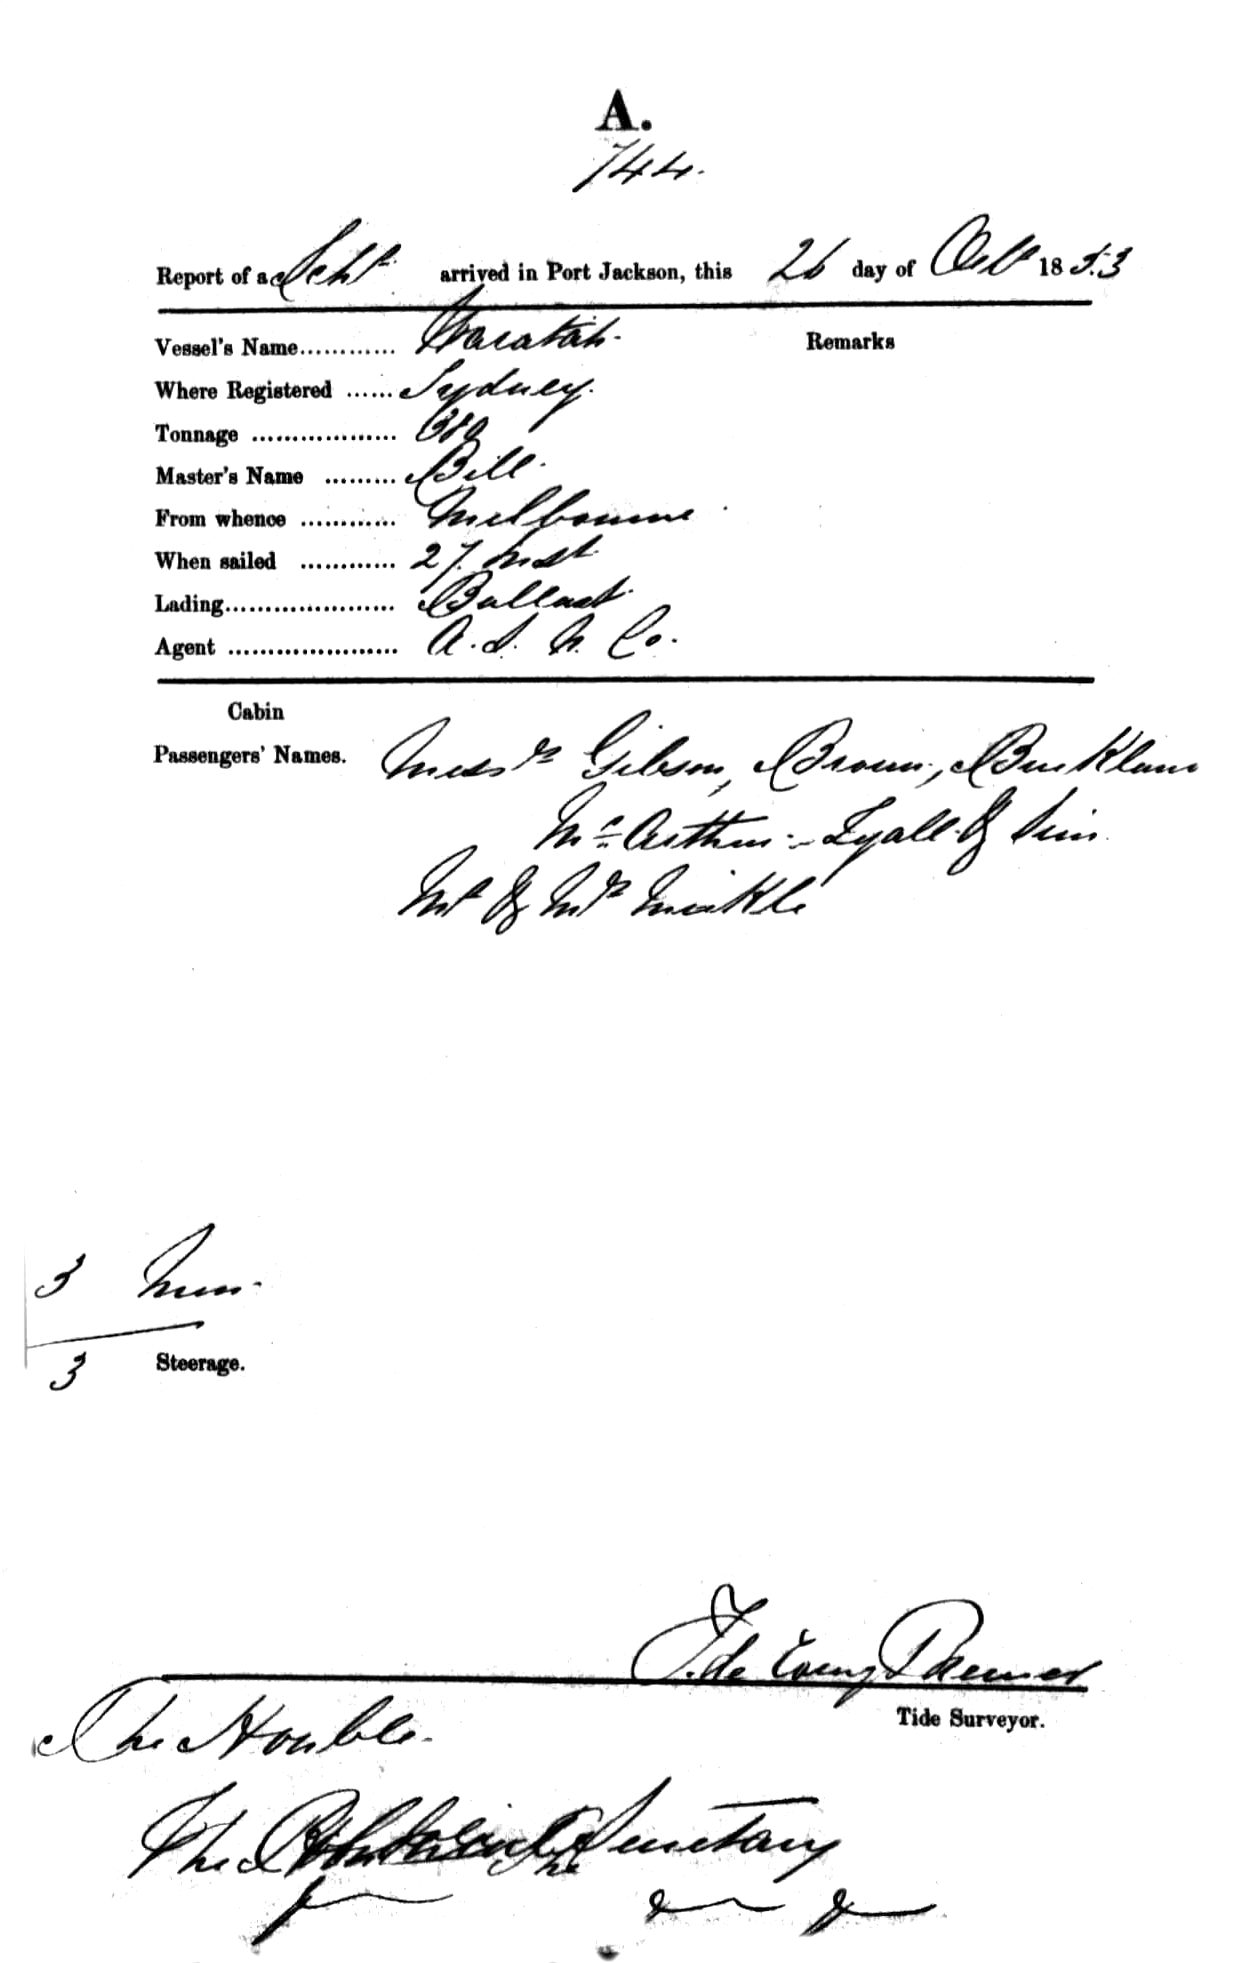 A.
744.
Report of a Schr arrived in Port Jackson, this 26 day of Octr 1853
Vessel's Name............ Waratah. Remarks
Where Registered ...... Sydney.
Tonnage .................. 380
Master's Name ......... Bell.
From whence ............ Melbourne
When sailed ............ 27. Inst
Lading..................... Ballast.
Agent ..................... A. S. N. Co.
Cabin
Passengers' Names. Messrs Gibson, Brown,
McArthur - Lyall & Sim.
Mr & Mrs Meikle
3 Men.
3 Steerage.
Tide Surveyor.
The Honble.
The Secretary